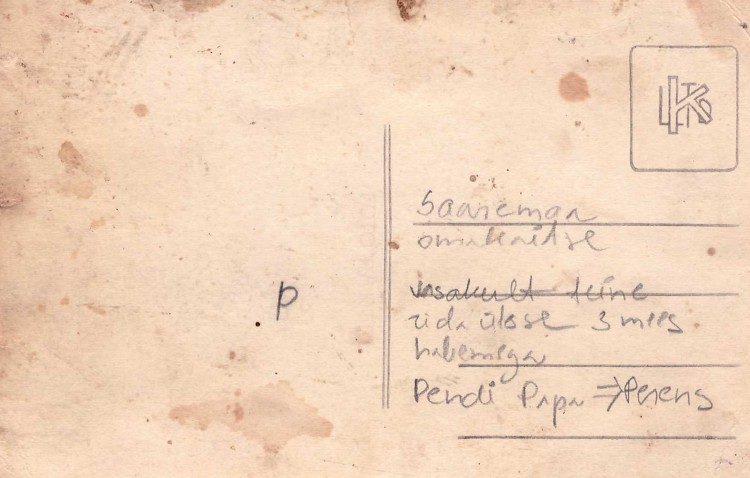 Saaremaa
omakaitse
vasakult teine
rida üless 3 mees
habemega
Pendi Papa ⇒ Perens
P